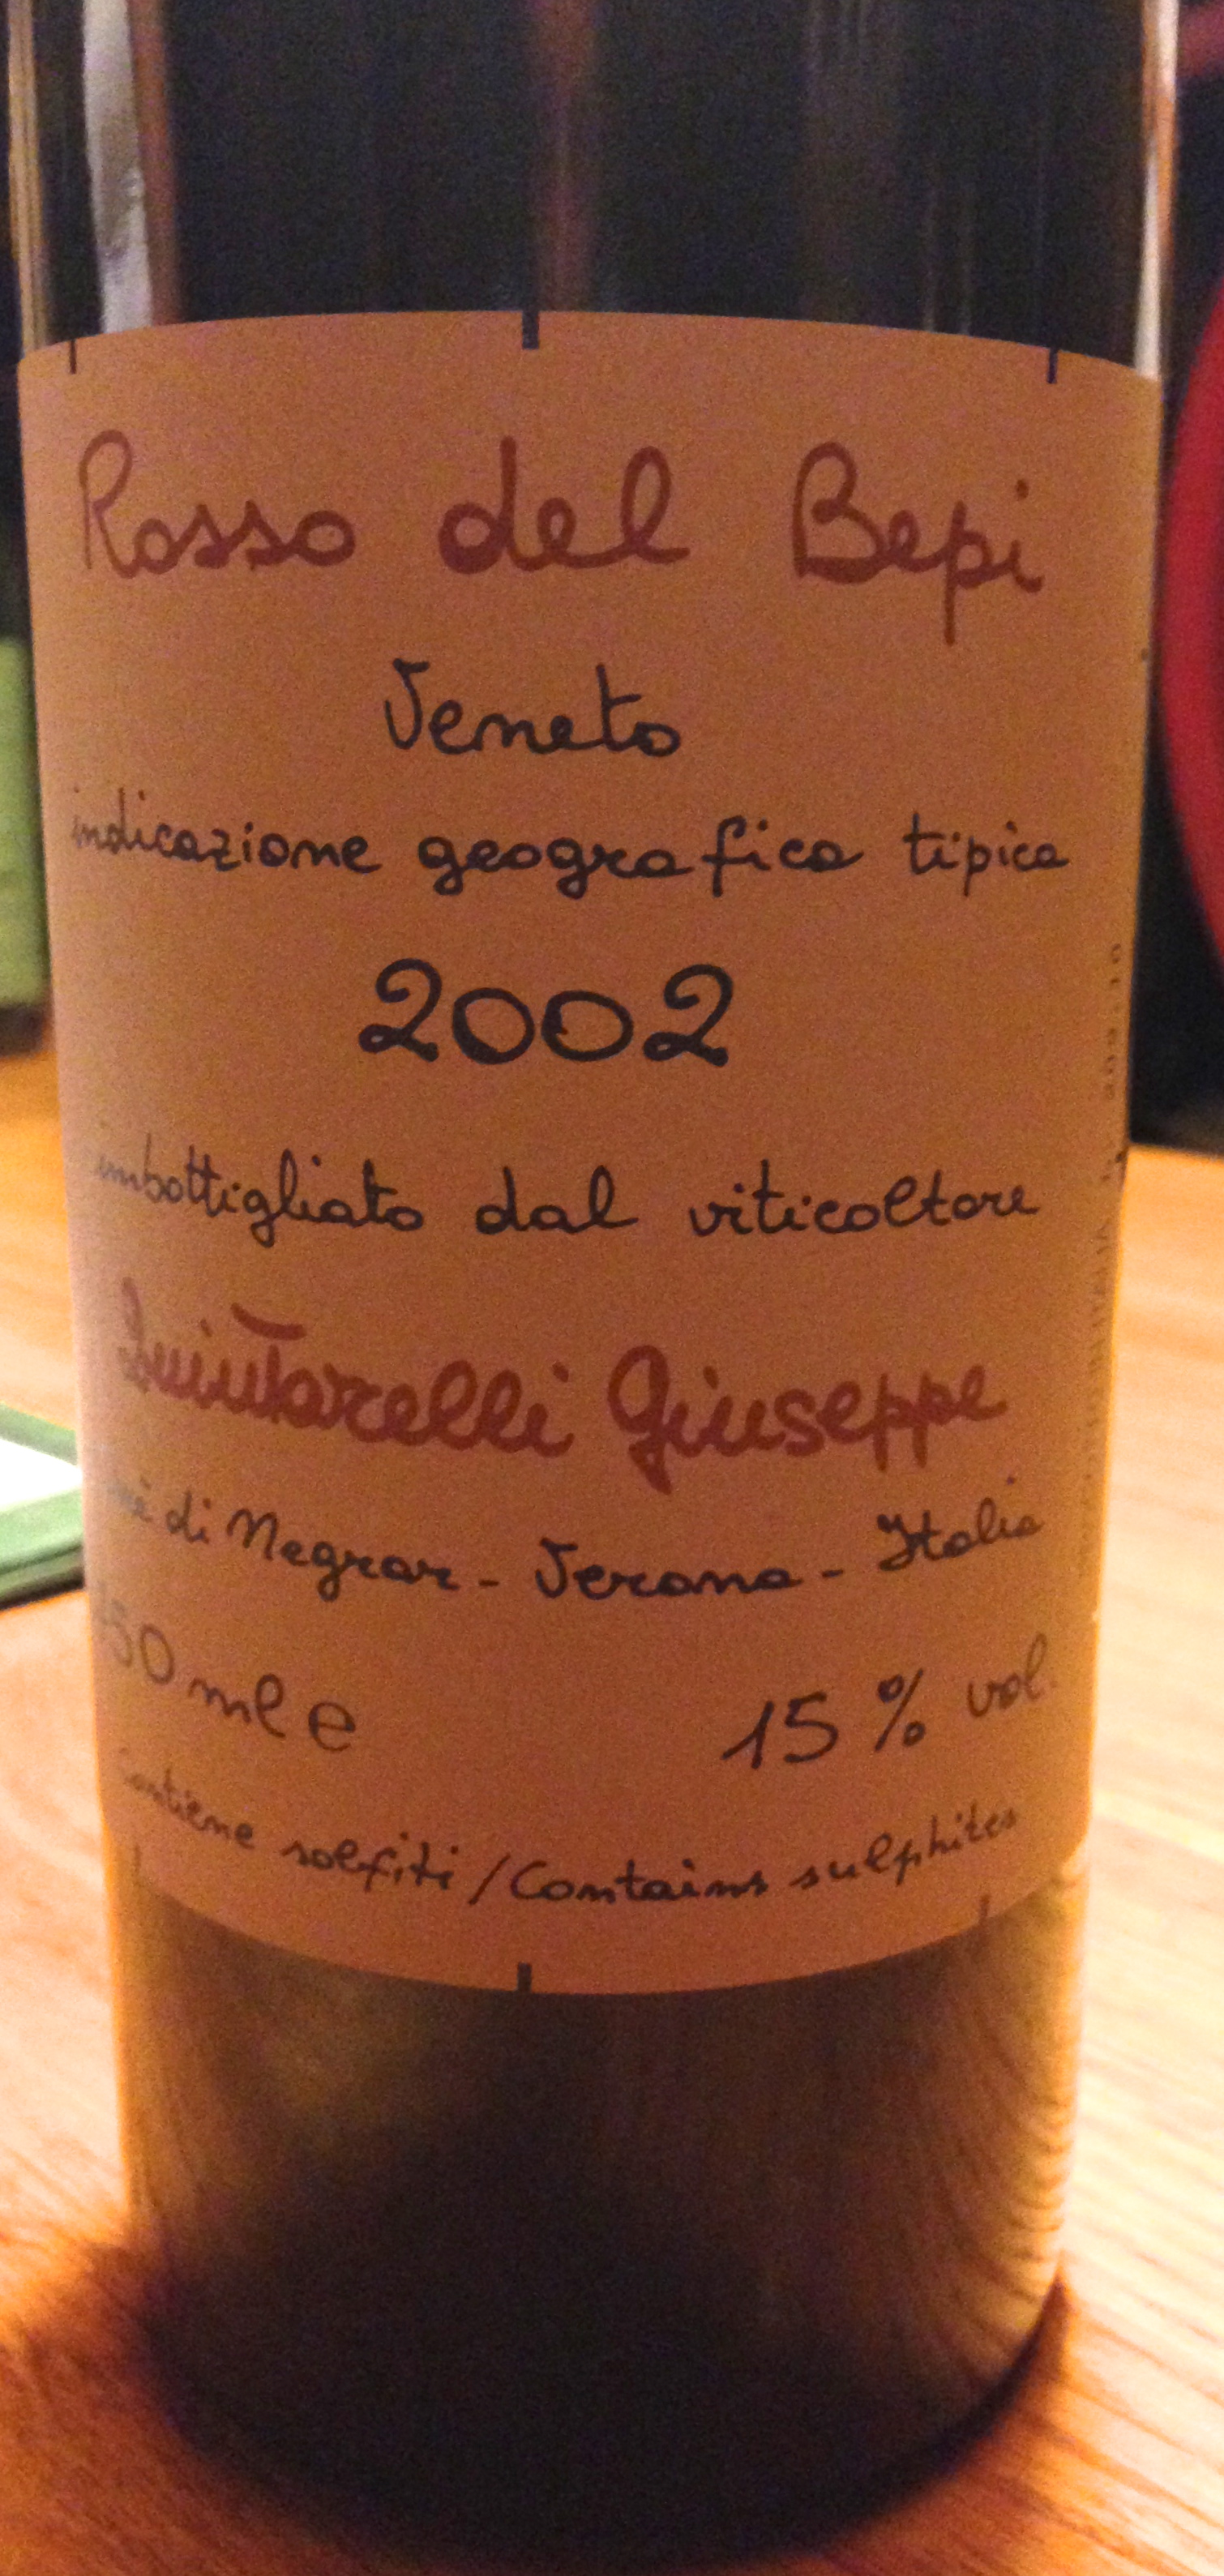 Rosso del Bepi
Veneto
indicazione geografica tipica
2002
imbottigliato dal viticoltore
Quintarelli Giuseppe
di Negrar - Verona - Italia
750 ml e 15% vol.
Contiene solfiti / Contains sulphites